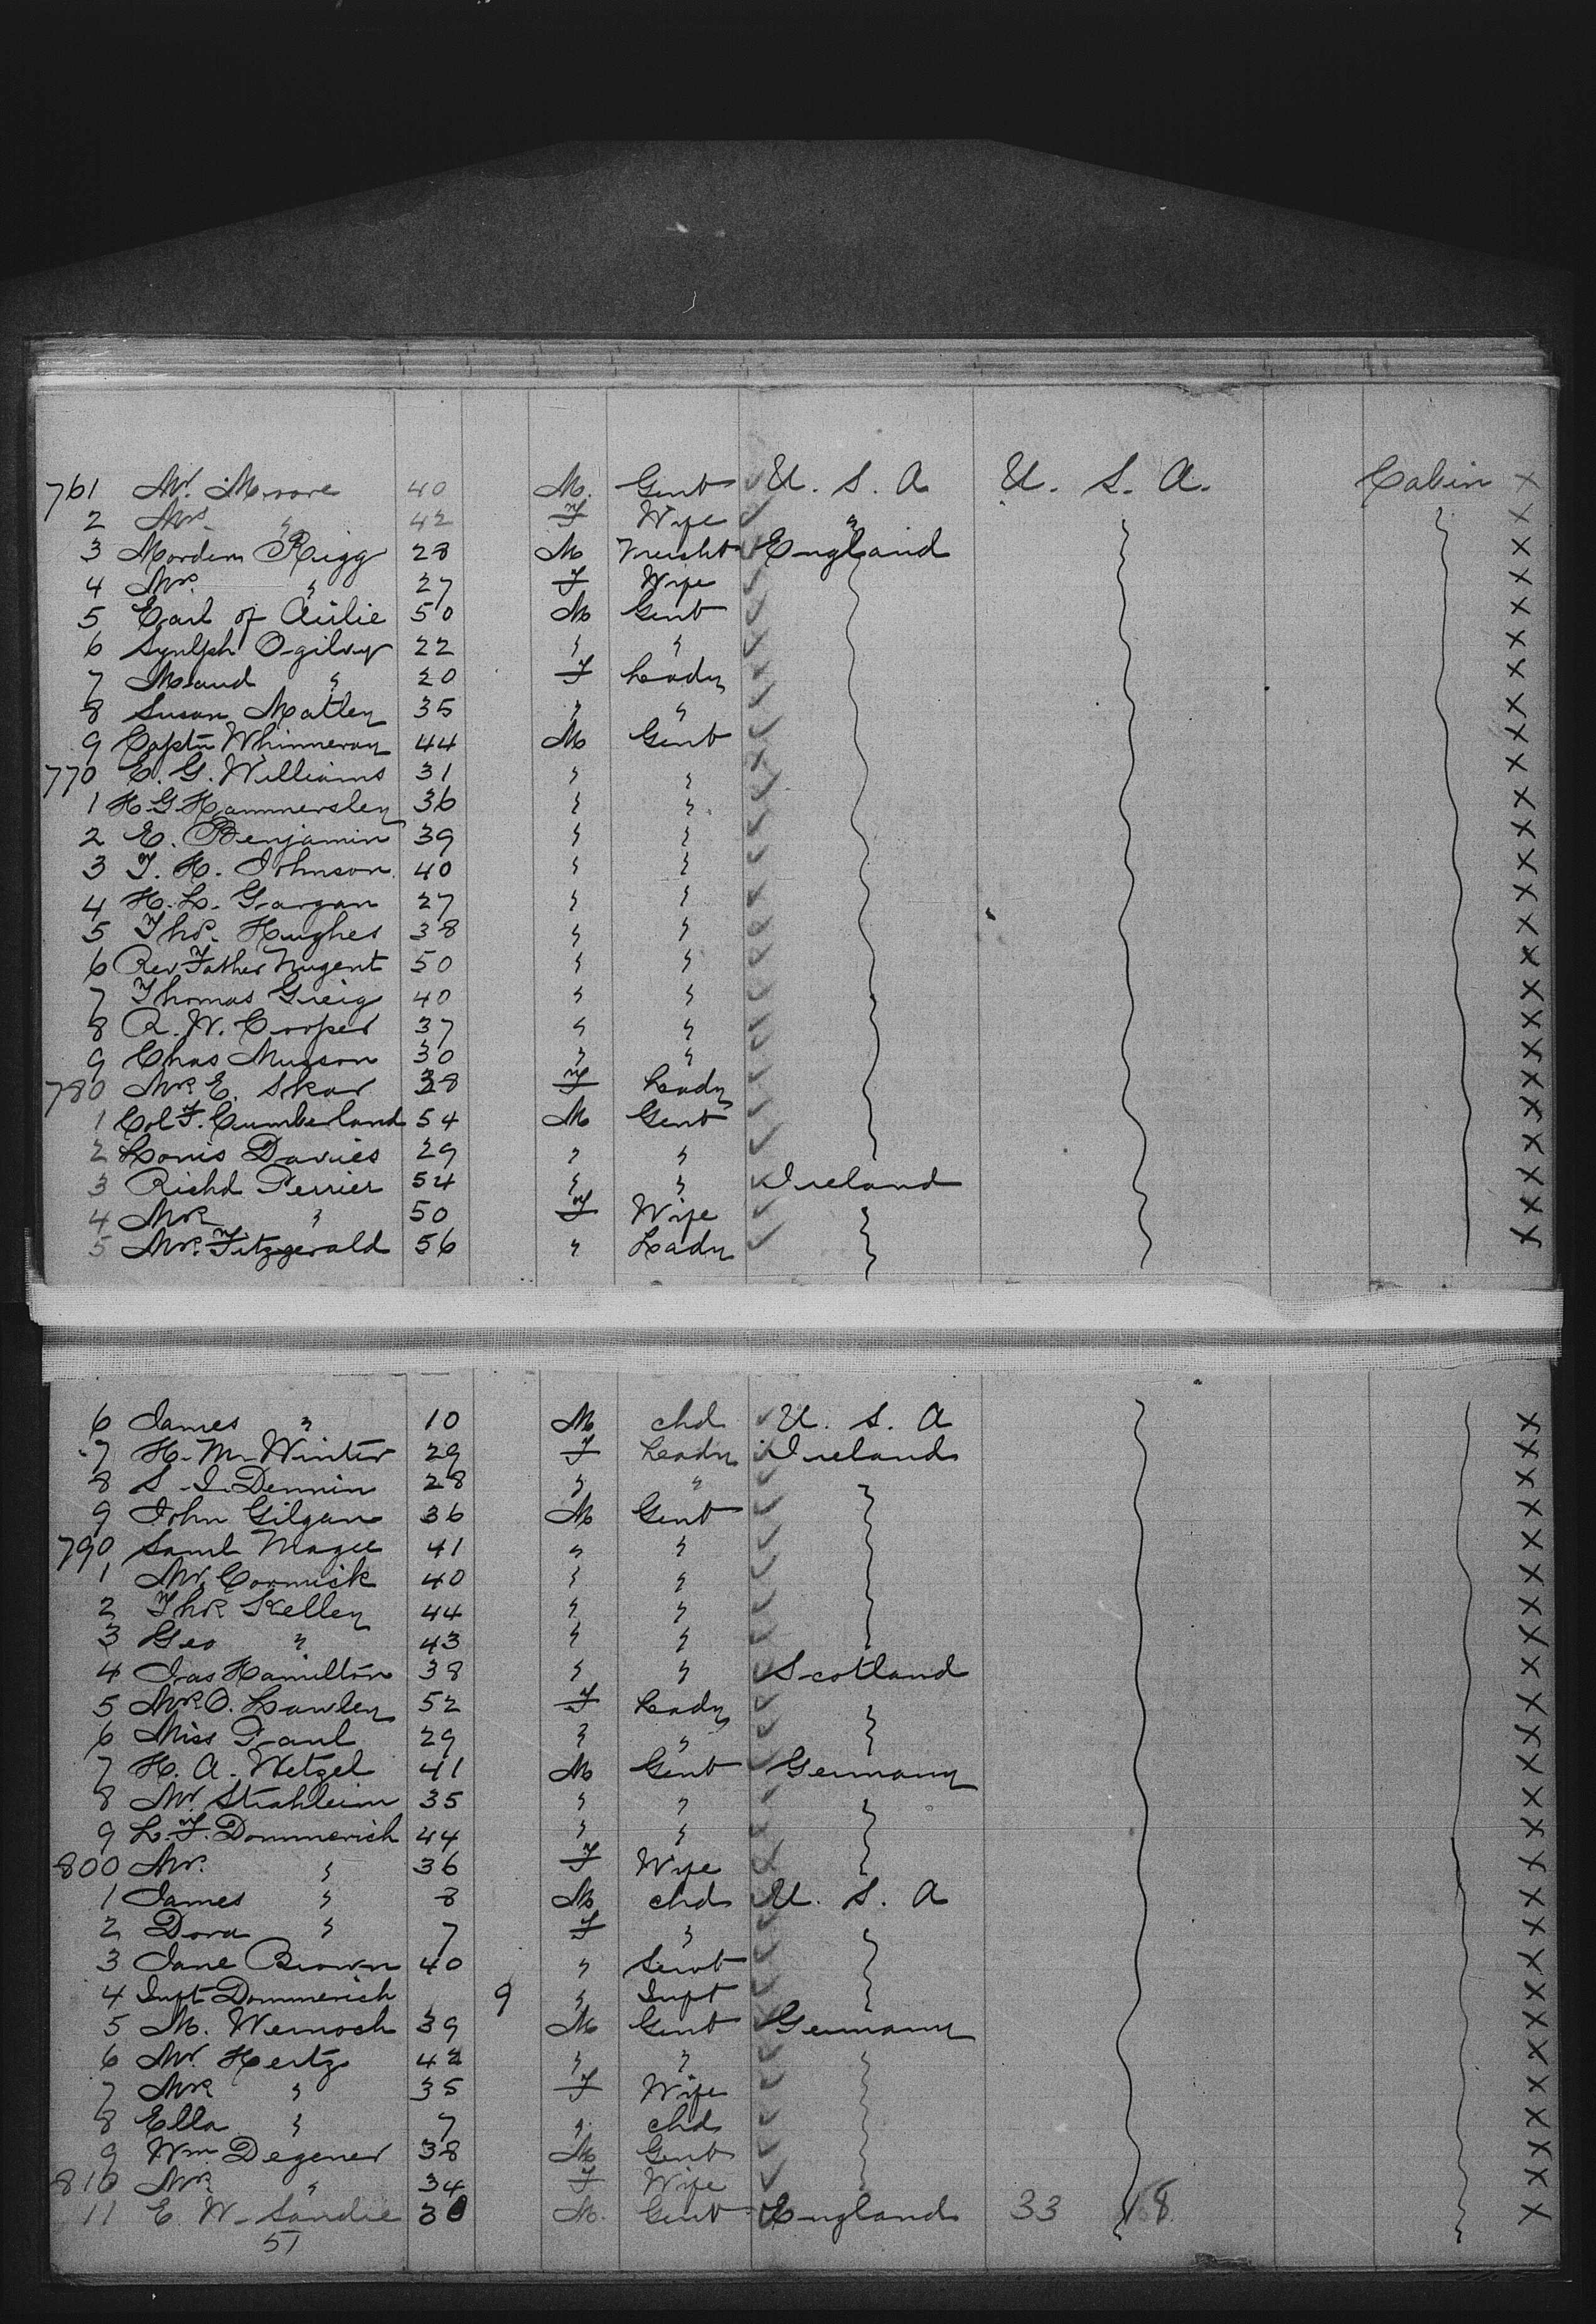 761 Mr. Moore 40 M. Gent U. S. A U. S. A. Cabin X
2 Mrs " 42 F Wife " X
3 Mordem Rigg 28 M England X
4 Mrs. " 27 F Wife X
5 Earl of Airlie 50 M Gent X
6 Synlph Ogilvy 22 " " X
7 Maud " 20 F Lady X
8 Susan Matley 35 " " X
9 Captn Whinneray 44 M Gent X
770 E. G. Williams 31 " " X
1 H G Hammersley 36 " " X
2 E. Benjamin 39 " " X
3 T. H. Johnson 40 " " X
4 H. L. Gargan 27 " " X
5 Thos. Hughes 38 " " X
6 Rev Father Nugent 50 " " X
7 Thomas Greig 40 " " X
8 R. W. Cooper 37 " " X
9 Chas Musson 30 " " X
780 Mrs E. Skar 38 F Lady X
1 Col F. Cumberland 54 M Gent X
2 Louis Davies 29 " " X
3 Richd Perrier 54 " " Ireland X
4 Mrs " 50 F Wife X
5 Mrs. Fitzgerald 56 " Lady X
6 James " 10 M chd U. S. A X
7 H. M. Winter 29 F Lady Ireland X
8 S. J. Dennin 28 " " X
9 John Gilgan 36 M Gent X
790 Saml Magee 41 " " X
1 Mr. Cormick 40 " " X
2 Thos Kelley 44 " " X
3 Geo " 43 " " X
4 Jas Hamilton 38 " " Scotland X
5 Mrs O. Lawley 52 F Lady X
6 Miss Paul 29 " " X
7 H. A. Wetzel 41 M Gent Germany X
8 Mr. Strahleim 35 " " X
9 L. F. Dommerich 44 " " X
800 Mrs. " 36 F Wife X
1 James " 8 M chd U. S. A X
2 Dora " 7 F " X
3 Jane Brown 40 " Servt X
4 Inft Dommerich 9 " Inft X
5 M. Wernoch 39 M Gent Germany X
6 Mr. Hertz 42 " " X
7 Mrs " 35 F Wife X
8 Ella " 7 " chd X
9 Wm. Degener 38 M Gent X
810 Mrs " 34 F Wife X
11 E. W. Sandie 30 M. Gent England 33 X
51